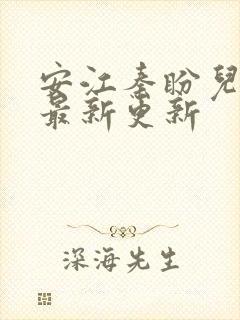 安江秦盼兒
最新更新
深海先生